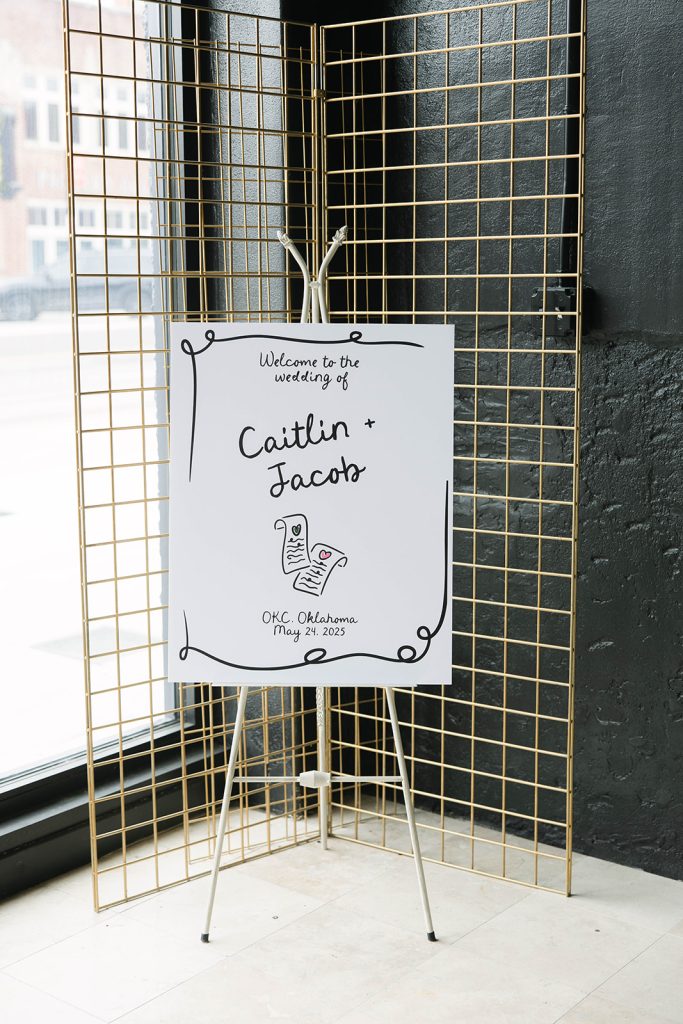 Welcome to the
wedding of
Caitlin +
Jacob
OKC, Oklahoma
May 24, 2025